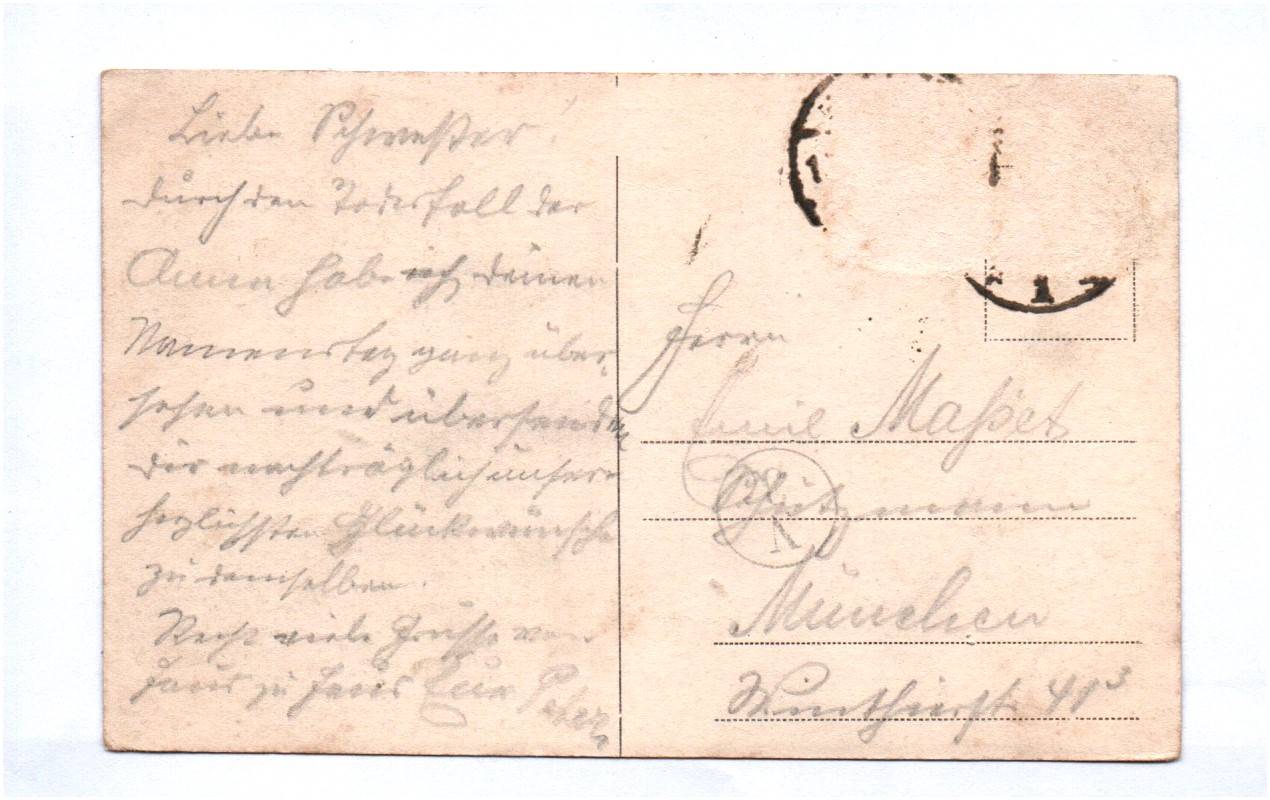 Liebe Schwester!
durch den Todesfall der
Anna habe ich deinen
Namenstag ganz über-
sehen und übersende
dir nachträglich unsere
herzlichsten Glückwünsche
zu demselben.
Recht viele Grüsse von
Haus zu Haus Euer Peter
Herrn
Emil Maßet
Schutzmann
München
Winthirstr. 41³